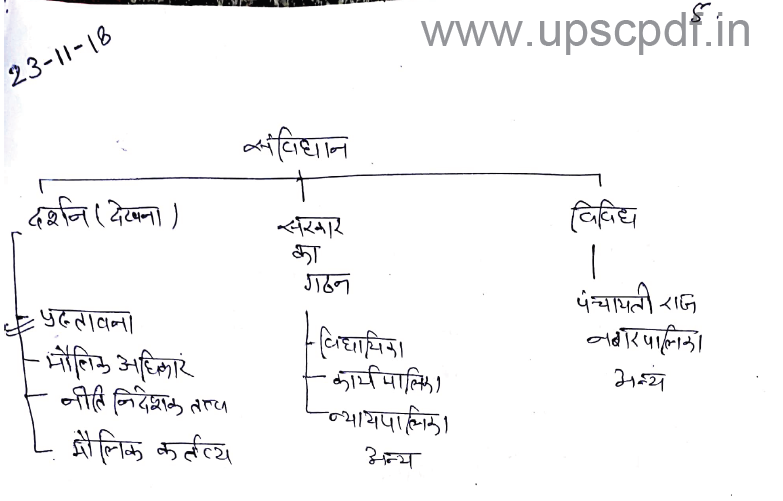 www.upscpdf.in
23-11-18
संविधान
दर्शन (देखना)
प्रस्तावना
मौलिक अधिकार
नीति निदेशक तत्व
मौलिक कर्तव्य
सरकार
का
गठन
विधायिका
कार्यपालिका
न्यायपालिका
अन्य
विविध
पंचायती राज
नगरपालिका
अन्य